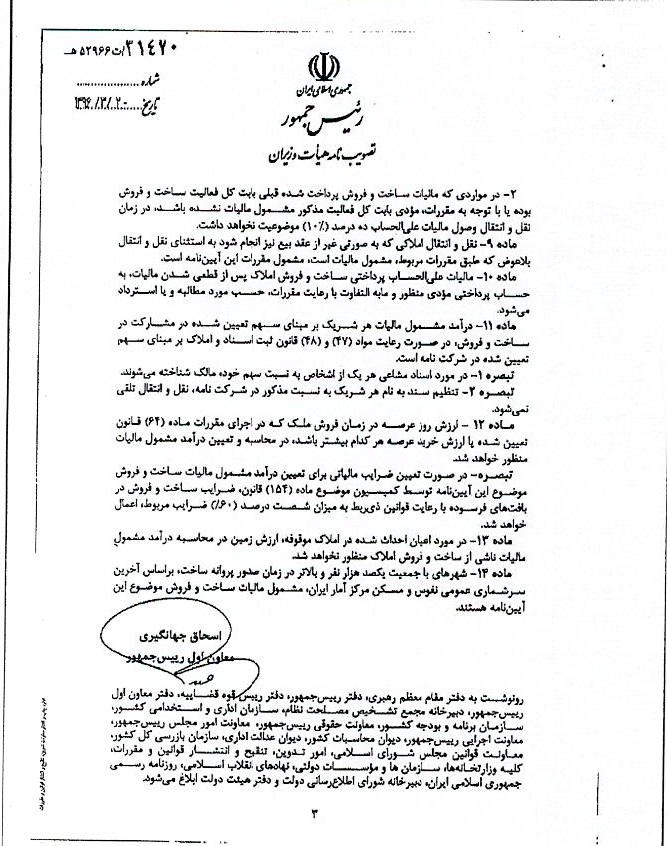 ۳۱۴۷۰/ت۵۲۹۶۶هـ
شماره......................
تاریخ......۱۳۹۶/۳/۲۰
جمهوری اسلامی ایران
رئیس جمهور
تصویب نامه هیأت وزیران
۲- در مواردی که مالیات ساخت و فروش پرداخت شده قبلی بابت کل فعالیت ساخت و فروش
بوده یا با توجه به مقررات، مؤدی بابت کل فعالیت مذکور مشمول مالیات نشده باشد، در زمان
نقل و انتقال وصول مالیات علی‌الحساب ده درصد (۱۰٪) موضوعیت نخواهد داشت.
ماده ۹- نقل و انتقال املاکی که به صورتی غیر از عقد بیع نیز انجام شود به استثنای نقل و انتقال
بلاعوض که طبق مقررات مربوط، مشمول مالیات است، مشمول مقررات این آیین‌نامه است.
ماده ۱۰- مالیات علی‌الحساب پرداختی ساخت و فروش املاک پس از قطعی شدن مالیات، به
حساب پرداختی مؤدی منظور و مابه التفاوت با رعایت مقررات، حسب مورد مطالبه و یا استرداد
می‌شود.
ماده ۱۱- درآمد مشمول مالیات هر شریک بر مبنای سهم تعیین شده در مشارکت در
ساخت و فروش، در صورت رعایت مواد (۴۷) و (۴۸) قانون ثبت اسناد و املاک بر مبنای سهم
تعیین شده در شرکت نامه است.
تبصره ۱- در مورد اسناد مشاعی هر یک از اشخاص به نسبت سهم خود، مالک شناخته می‌شوند.
تبصره ۲- تنظیم سند به نام هر شریک به نسبت مذکور در شرکت نامه، نقل و انتقال تلقی
نمی‌شود.
ماده ۱۲ - ارزش روز عرصه در زمان فروش ملک که در اجرای مقررات ماده (۶۴) قانون
تعیین شده یا ارزش خرید عرصه هر کدام بیشتر باشد، در محاسبه و تعیین درآمد مشمول مالیات
منظور خواهد شد.
تبصره- در صورت تعیین ضرایب مالیاتی برای تعیین درآمد مشمول مالیات ساخت و فروش
موضوع این آیین‌نامه توسط کمیسیون موضوع ماده (۱۵۴) قانون، ضرایب ساخت و فروش در
بافت‌های فرسوده با رعایت قوانین ذی‌ربط به میزان شصت درصد (۶۰٪) ضرایب مربوط، اعمال
خواهد شد.
ماده ۱۳- در مورد اعیان احداث شده در املاک موقوفه، ارزش زمین در محاسبه درآمد مشمول
مالیات ناشی از ساخت و فروش املاک منظور نخواهد شد.
ماده ۱۴- شهرهای با جمعیت یکصد هزار نفر و بالاتر در زمان صدور پروانه ساخت، براساس آخرین
سرشماری عمومی نفوس و مسکن مرکز آمار ایران، مشمول مالیات ساخت و فروش موضوع این
آیین‌نامه هستند.
اسحاق جهانگیری
معاون اول رییس‌جمهور
رونوشت به دفتر مقام معظم رهبری، دفتر رییس‌جمهور، دفتر رییس قوه قضاییه، دفتر معاون اول
رییس‌جمهور، دبیرخانه مجمع تشخیص مصلحت نظام، سازمان اداری و استخدامی کشور،
سازمان برنامه و بودجه کشور، معاونت حقوقی رییس‌جمهور، معاونت امور مجلس رییس‌جمهور،
معاونت اجرایی رییس‌جمهور، دیوان محاسبات کشور، دیوان عدالت اداری، سازمان بازرسی کل کشور،
معاونت قوانین مجلس شورای اسلامی، امور تدوین، تنقیح و انتشار قوانین و مقررات،
کلیه وزارتخانه‌ها، سازمان ها و مؤسسات دولتی، نهادهای انقلاب اسلامی، روزنامه رسمی
جمهوری اسلامی ایران، دبیرخانه شورای اطلاع‌رسانی دولت و دفتر هیئت دولت ابلاغ می‌شود.
۳